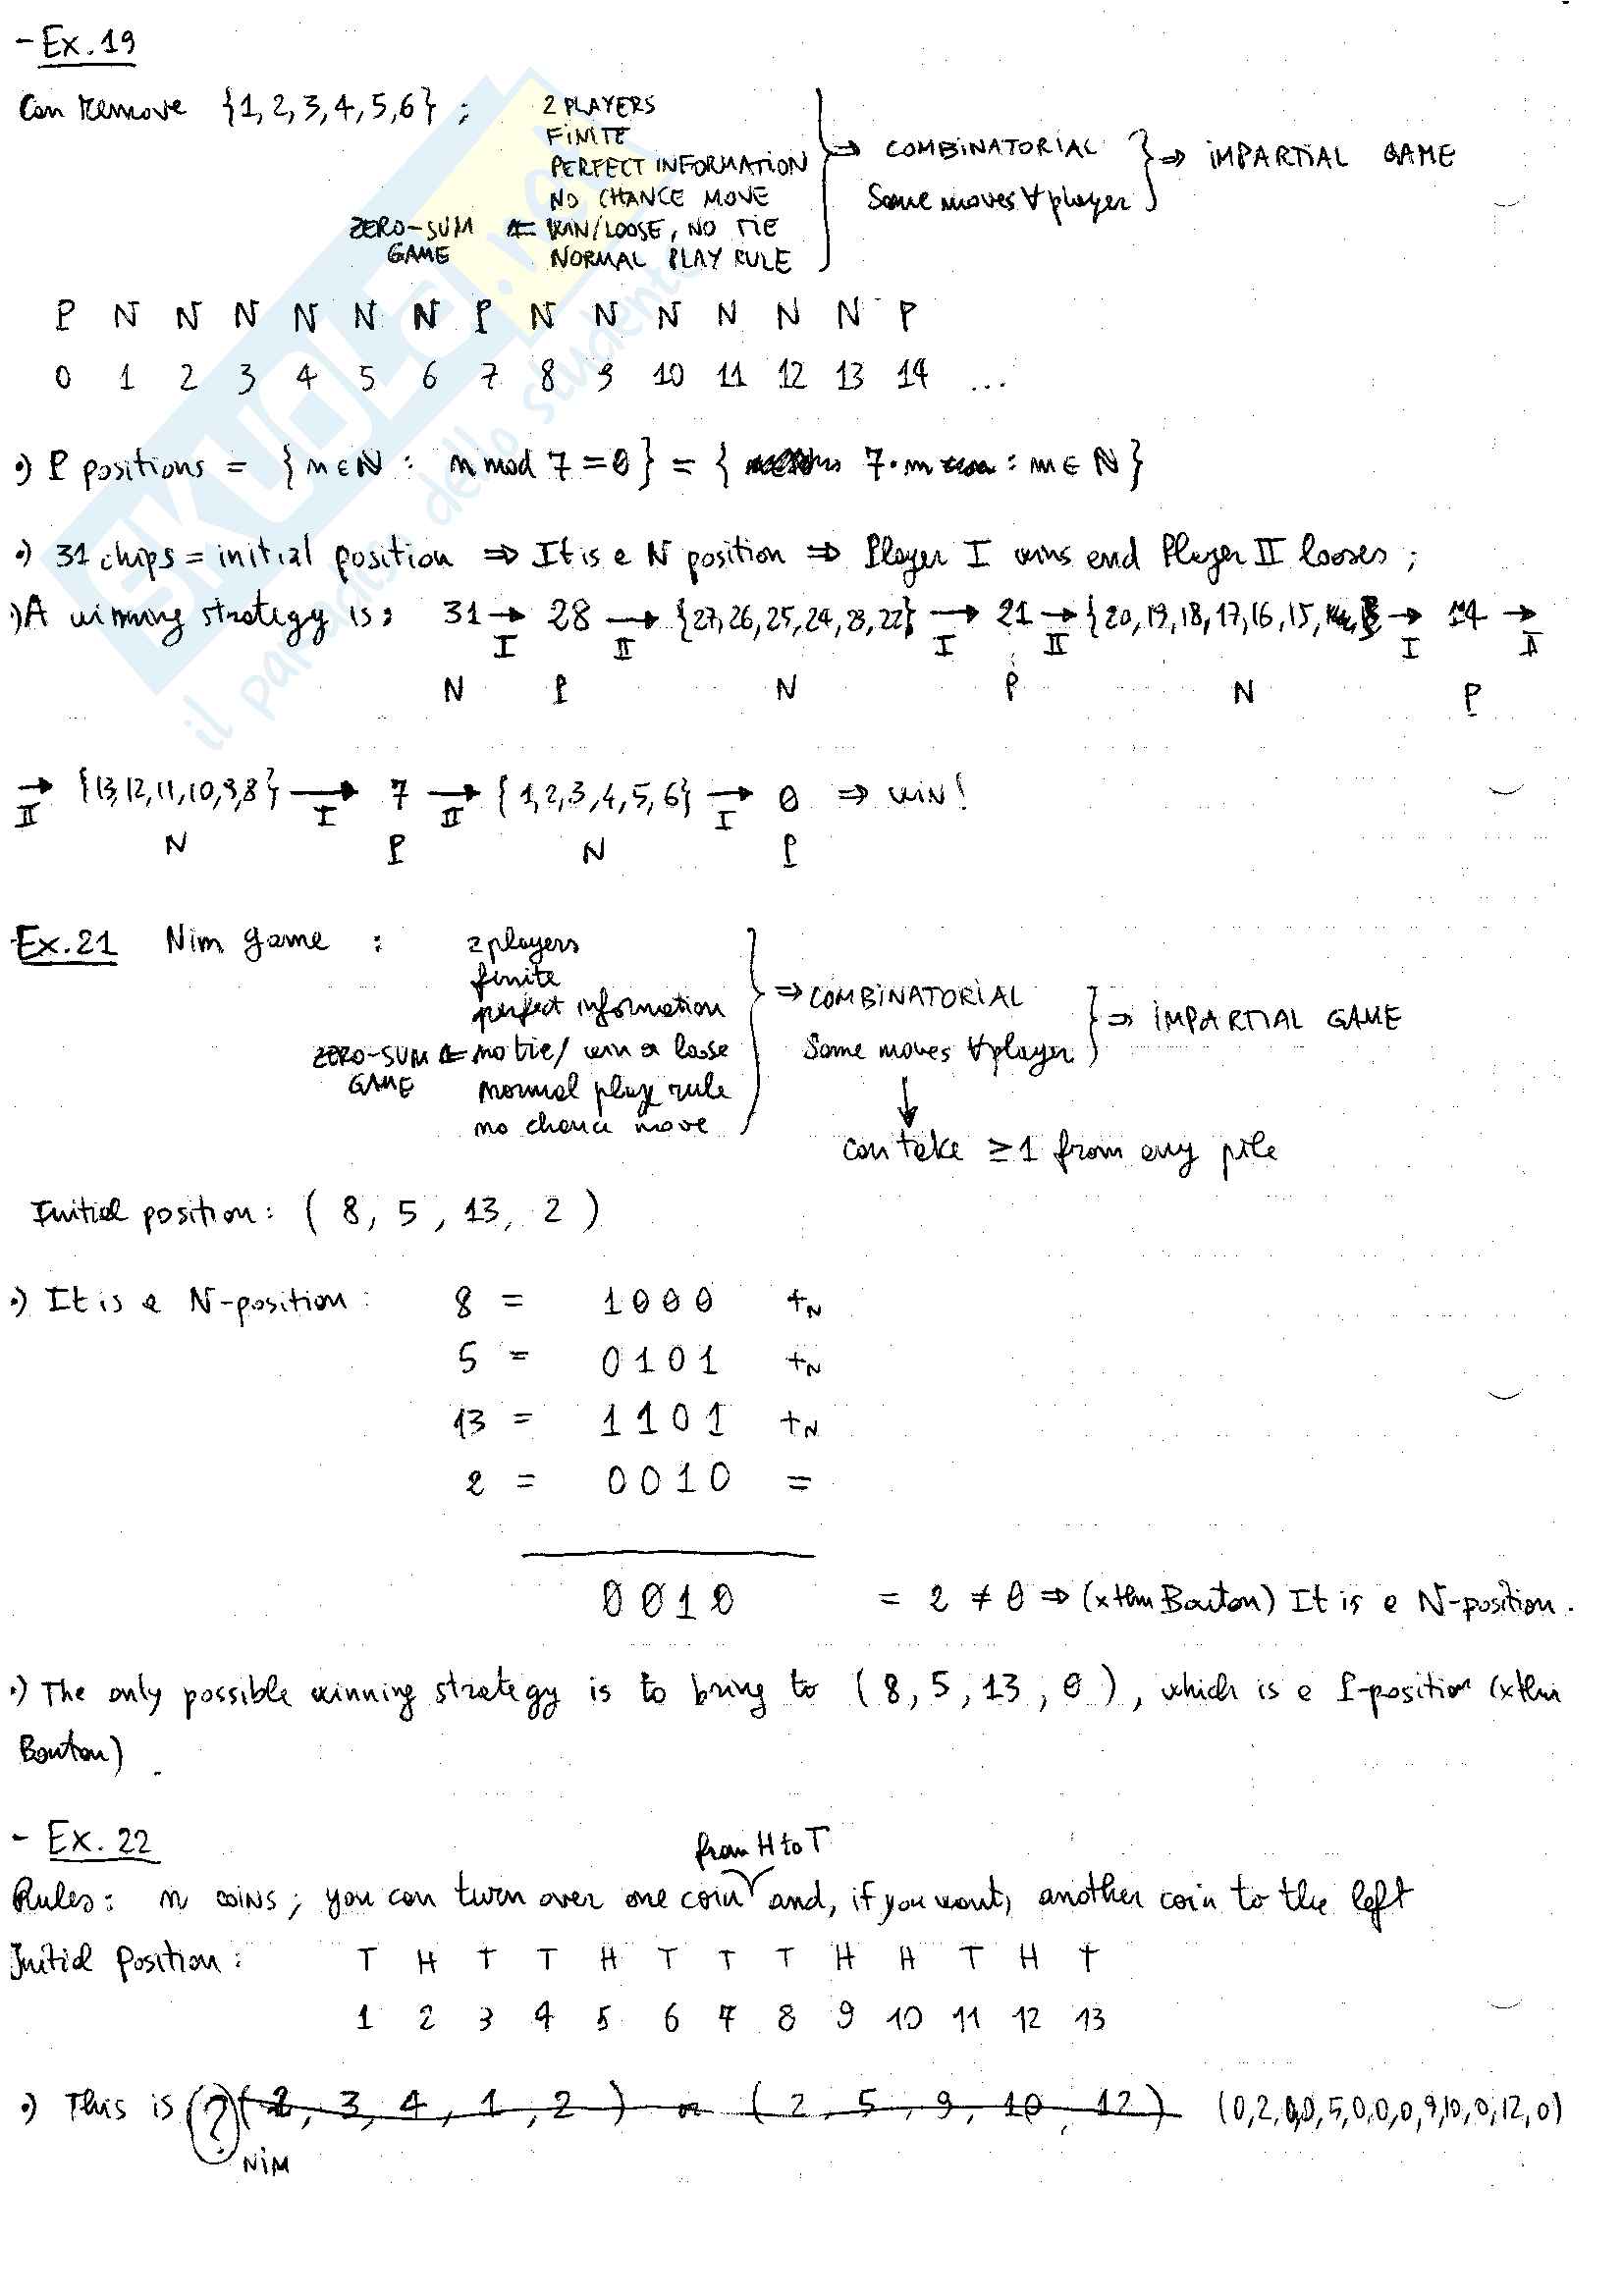 - Ex. 19
Can remove {1, 2, 3, 4, 5, 6} ;
2 PLAYERS
FINITE
PERFECT INFORMATION
NO CHANCE MOVE
ZERO-SUM GAME ⇐ WIN/LOOSE, NO TIE
NORMAL PLAY RULE
⇒ COMBINATORIAL
Same moves ∀ player
⇒ IMPARTIAL GAME
P N N N N N N P N N N N N N P
0 1 2 3 4 5 6 7 8 9 10 11 12 13 14 ...
•) P positions = {n ∈ N : n mod 7 = 0} = { 7·m : m ∈ N}
•) 31 chips = initial position ⇒ It is a N position ⇒ Player I wins and Player II looses ;
•) A winning strategy is: 31 → 28 → {27, 26, 25, 24, 23, 22} → 21 → {20, 19, 18, 17, 16, 15, → 14 →
I II I II I II
N P N P N P
→ {13, 12, 11, 10, 9, 8} → 7 → {1, 2, 3, 4, 5, 6} → 0 ⇒ WIN!
II I II I
N P N P
Ex. 21 Nim game :
2 players
finite
perfect information
ZERO-SUM GAME ⇐ no tie / win or loose
normal play rule
no chance move
⇒ COMBINATORIAL
Same moves ∀ player
⇒ IMPARTIAL GAME
↓
can take ≥ 1 from any pile
Initial position: ( 8, 5, 13, 2 )
•) It is a N-position: 8 = 1000 +N
5 = 0101 +N
13 = 1101 +N
2 = 0010 =
0010 = 2 ≠ 0 ⇒ (x thm Bouton) It is a N-position.
•) The only possible winning strategy is to bring to ( 8, 5, 13, 0 ), which is a P-position (x thm
Bouton).
- Ex. 22
from H to T
Rules: n coins; you can turn over one coin and, if you want, another coin to the left
Initial Position: T H T T H T T T H H T H T
1 2 3 4 5 6 7 8 9 10 11 12 13
•) This is (?) (2, 3, 4, 1, 2) or (2, 5, 9, 10, 12) (0,2,0,0,5,0,0,0,9,10,0,12,0)
NIM
SKUOLA.net
il paradiso dello studente